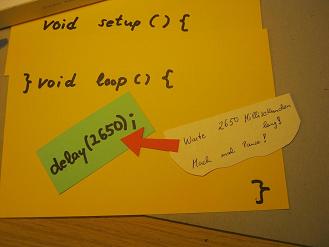 void setup () {
} void loop () {
delay(2650);
Warte 2650 Millisekunden
lang!
Mach mal Pause!
}